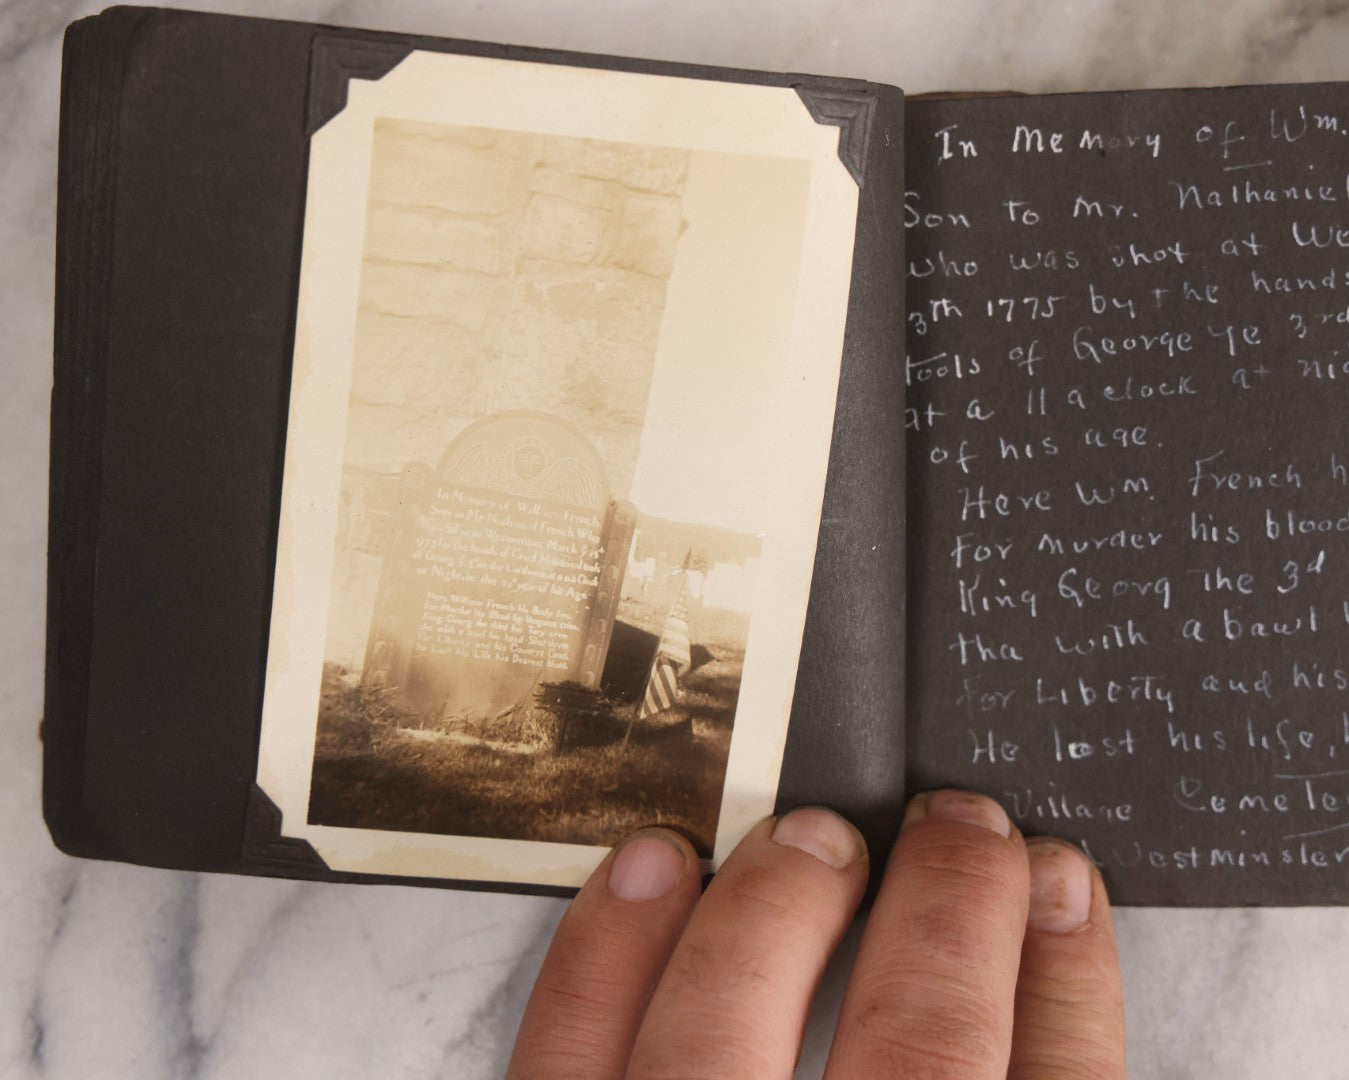 In Memory of William French
Son to Mr Nathaniel French Who
Was Shot at Westminster March ye 13th
1775 by the hands of Cruel Ministereal tools
of Georg ye 3d in the Corthouse at a 11 a Clock
at Night in the 22d year of his Age
Here William French his Body lies
For Murder his Blood for Vengance cries
King Georg the third his Tory crew
tha with a bawl his head Shot threw
For Liberty and his Countrys Good
he Lost his Life his Dearest blood
In Memory of Wm.
Son To Mr. Nathaniel
who was shot at We
3th 1775 by the hands
tools of George ye 3rd
at a 11 a clock at nig
of his age.
Here Wm. French h
For Murder his blood
King Georg The 3d
tha with a bawl
For Liberty and his
He lost his life,
Village Cemete
Westminster